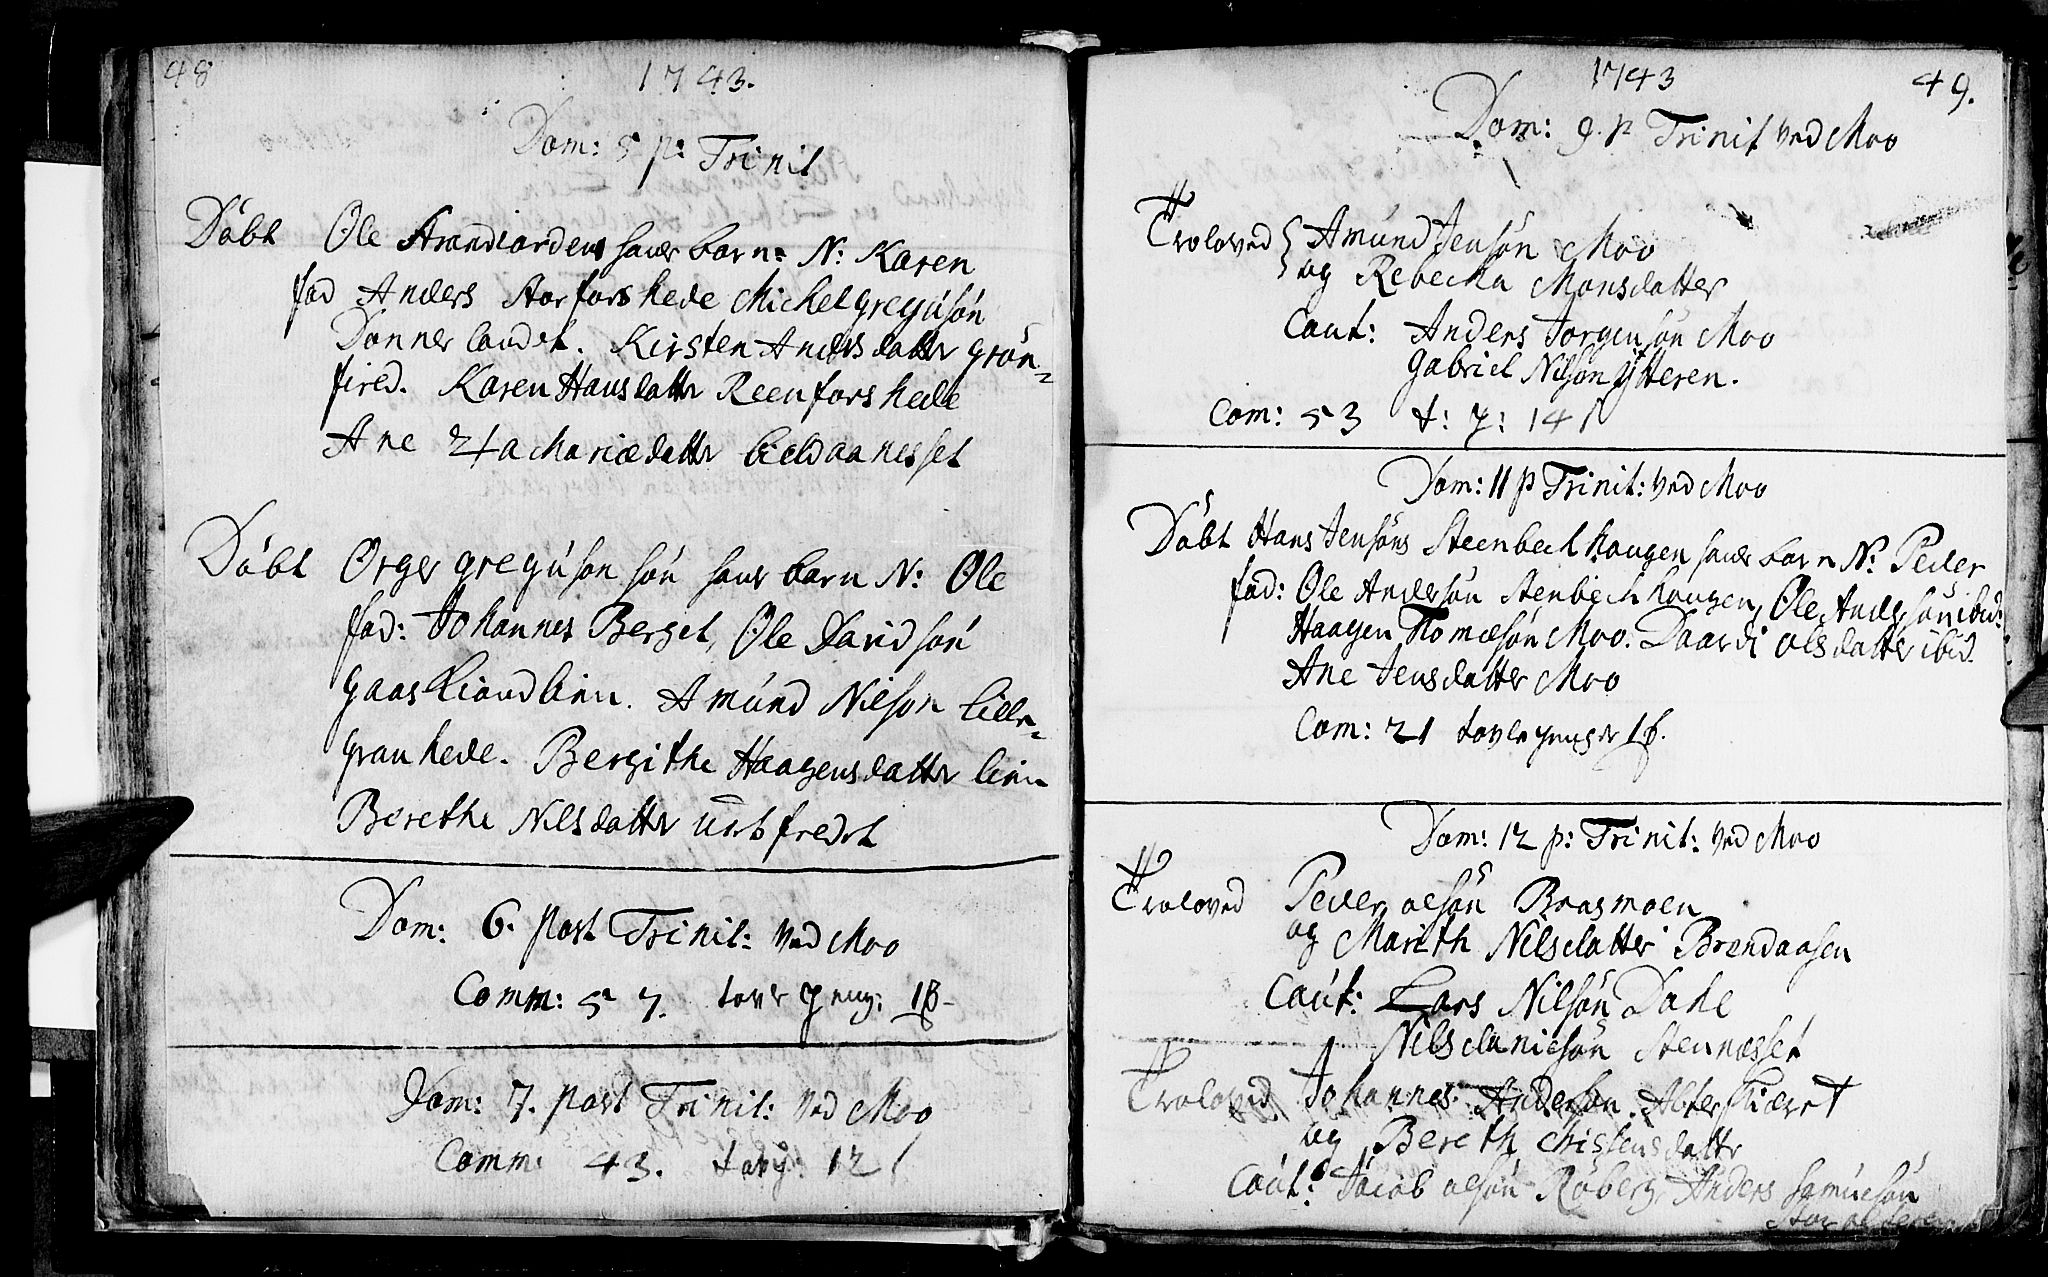 48
1743.
Dom: 5 p: Trinit
Döbt Ole Strandiordens hans barn: N: Karen
fad Anders Storforshede Michel gregusön
Dønnerlandet. Kirsten Andersdatter grön-
fired. Karen Hansdatter Reenforshede
Ane Zachariædatter
Döbt Orger greguson sön hans barn N: Ole
fad: Johannes Berget, Ole Davidsön
Amund Nilson lille-
granhede. Bergithe Haagensdatter
Berethe Nilsdatter
Dom: 6. post Trinit: ved Moo
Comm: 57. tavle peng: 1ß-
Dom: 7. post Trinit: ved Moo
Comm: 43. tavg: 12 ſ
1743
49.
Dom: 9. p Trinit ved Moo
Troloved Amund Jensön Moo
og Rebecka Monsdatter
Caut: Anders Jorgensön Moo
Gabriel Nilsön Ytteren.
Com: 53 t: p: 14 ſ
Dom: 11 p Trinit: ved Moo
Döbt Hans Jensöns Steenbechhaugen hans barn N: Peder
fad: Ole Andersön Stenbechhaugen, Ole Andersön ibid:
Haagen Thomesön Moo. Daardi olsdatter ibid.
Ane Jensdatter Moo
Com: 21 tavle penger 1ß.
Dom: 12 p: Trinit: ved Moo
Troloved Peder olsön Braasmoen
og Marith Nilsdatter Brendaasen
Caut: Lars Nilsön Dahl
Nils danielsön Stennesset
Troloved Johannes Anderson Alterskiæret
og Bereth Chistensdatter
Caut: Jacob olsön Röberg, Anders Samuelsön
Stor alteren